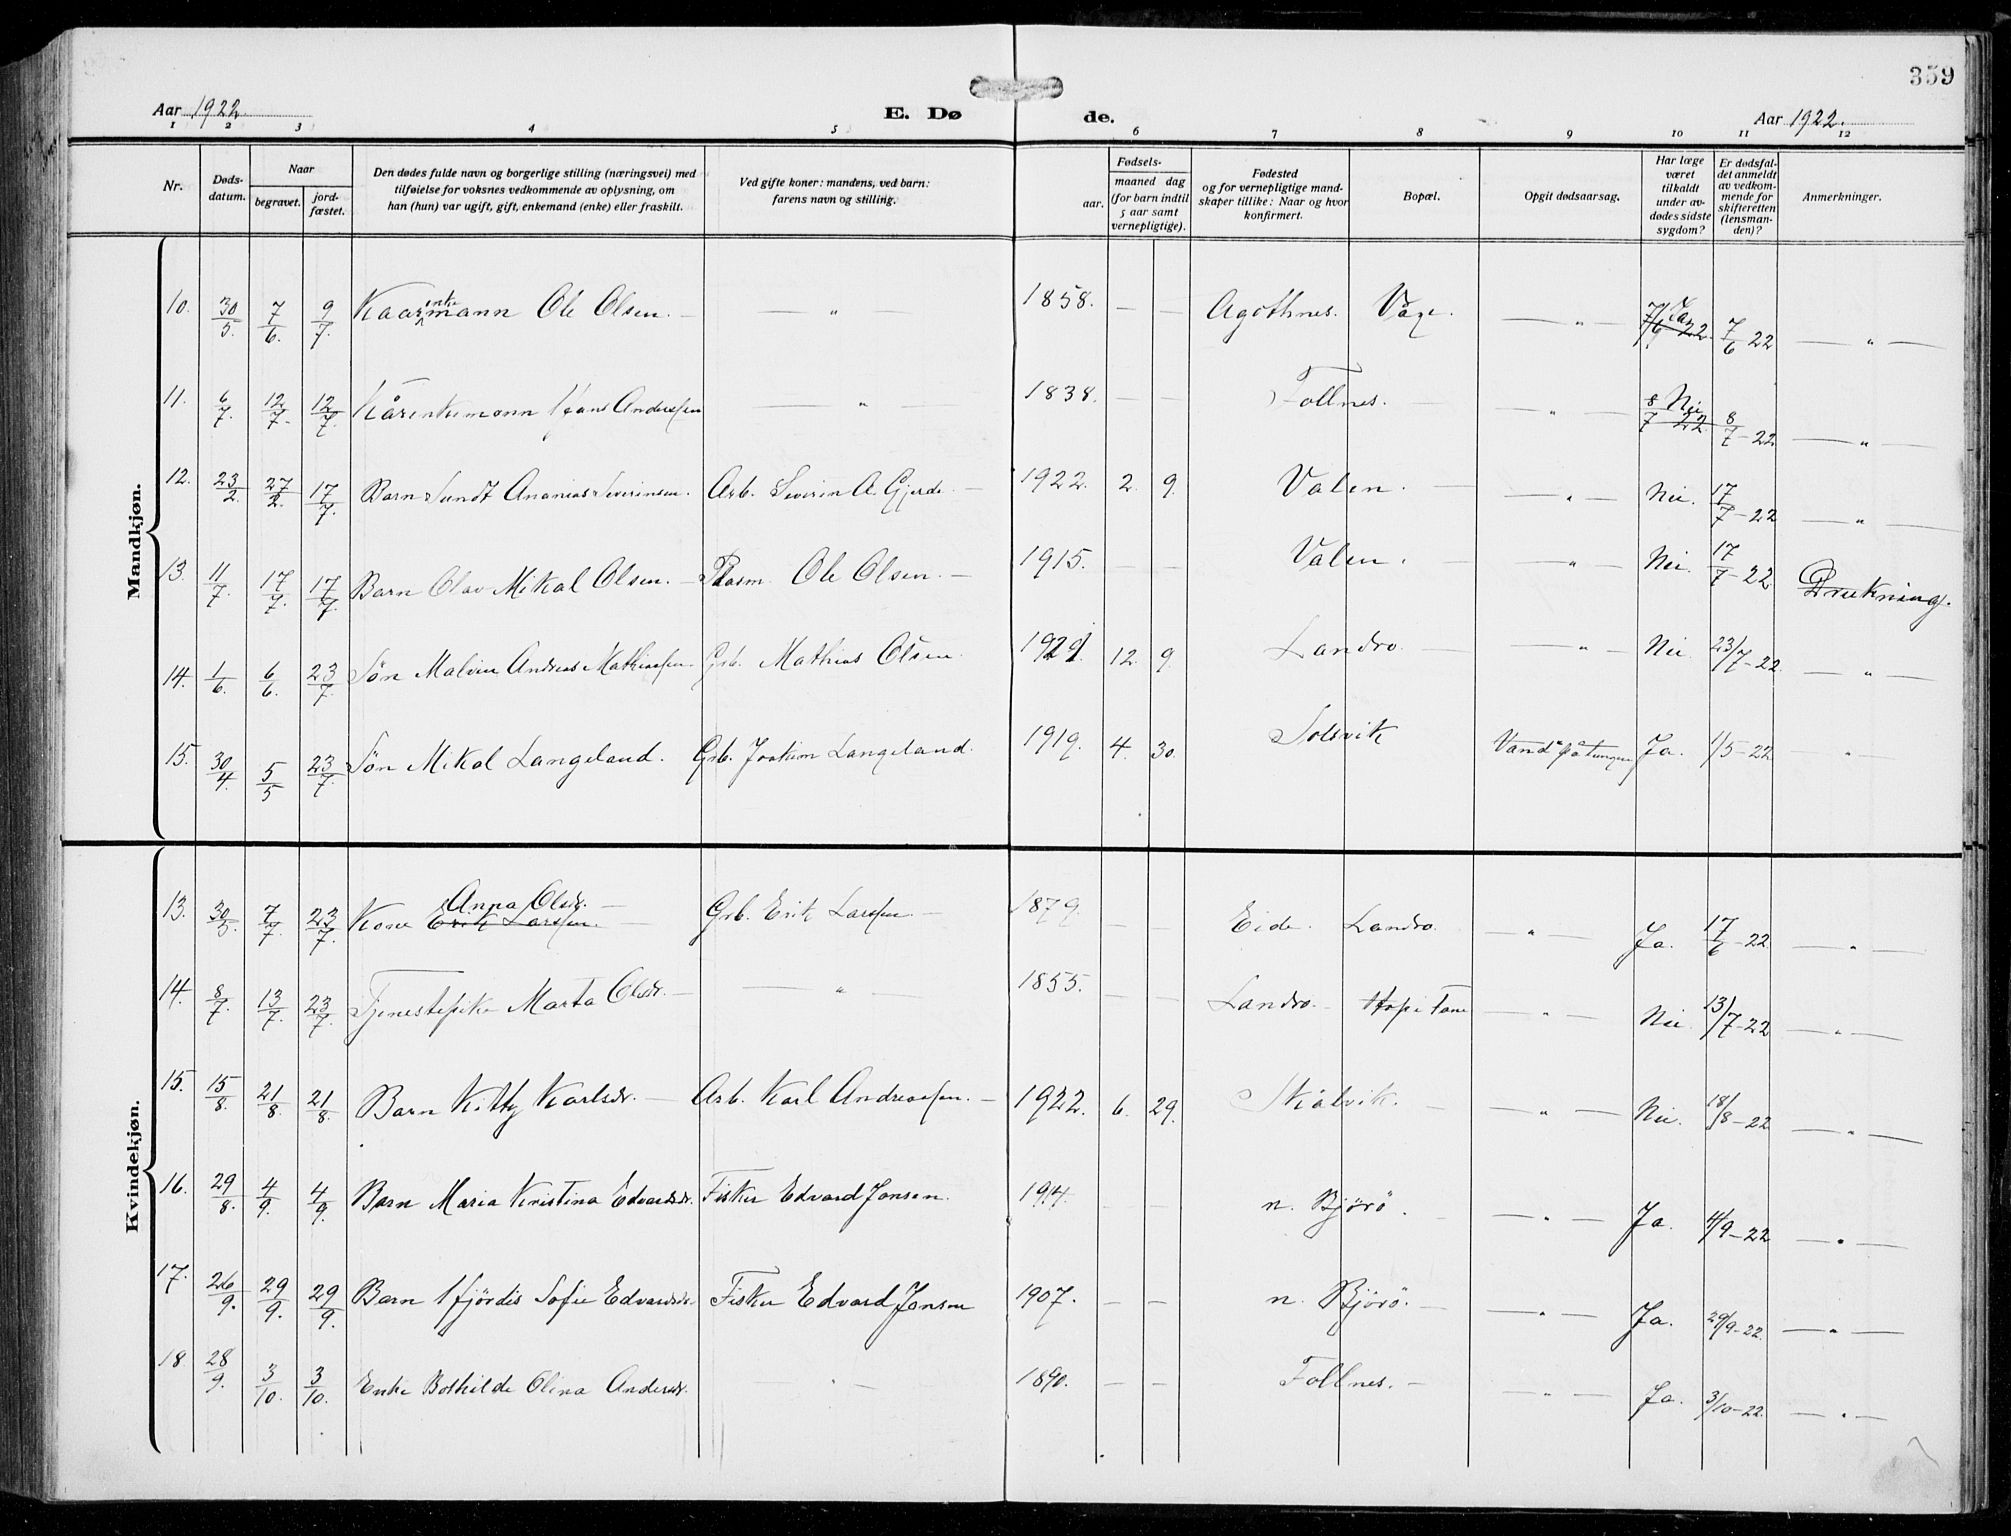 359
Aar 1922.
E. Dø
de.
Aar 1922.
1 2 3 4 5 6 7 8 9 10 11 12
Nr.
Døds-
datum.
Naar
begravet.
jord-
fæstet.
Den dødes fulde navn og borgerlige stilling (næringsvei) med
tilføielse for voksnes vedkommende av oplysning, om
han (hun) var ugift, gift, enkemand (enke) eller fraskilt.
Ved gifte koner: mandens, ved barn:
farens navn og stilling.
Fødsels-
aar.
maaned dag
(for barn indtil
5 aar samt
vernepligtige).
Fødested
og for vernepligtige mand-
skaper tillike: Naar og hvor
konfirmert.
Bopæl.
Opgit dødsaarsag.
Har læge
været
tilkaldt
under av-
dødes sidste
sygdom?
Er dødsfal-
det anmeldt
av vedkom-
mende for
skifteretten
(lensman-
den)?
Anmerkninger.
Mandkjøn.
10. 30/5. 7/6. 9/7. Kaarenkemann Ole Olsen. — — " — 1858. — — Agothnes. Våge. — " — 7/6 22 Ja 7/6 22 — " —
11. 6/7. 12/7. 12/7. Kårenkemann Hans Anderssen — " — 1838. — — Follnes. — — " — 8/7 22 Nei 8/7-22 — " —
12. 23/2. 27/2. 17/7. Barn Sundt Ananias Severinsen. Arb. Severin A. Gjerde. — 1922. 2. 9. Valen. — — " — Nei. 17/7-22 — " —
13. 11/7. 17/7. 17/7. Barn Olav Mikal Olsen. — Plasm. Ole Olsen. — 1915. — — Valen. — — " — Nei. 17/7-22 Drukning.
14. 1/6. 6/6. 23/7. Søn Malvin Andreas Mathiassen. Grb. Mathias Olsen. 1921. 12. 9. Landro. — — " — Nei. 23/7-22 — " —
15. 30/4. 5/5 23/7. Søn Mikal Langeland. Grb. Joakim Langeland. 1919. 4. 30. Solsvik Vand på lungen Ja. 1/5-22 — " —
Kvindekjøn.
13. 30/5. 7/7. 23/7. Kone Erik Larssen. Anna Olsdr. — Grb. Erik Larssen. — 1879. — — Eide. Landro. — " — Ja. 17/6-22 — " —
14. 8/7. 13/7. 23/7. Tjenestepike Marta Olsdr. — — " — 1855. — — Landro. — — " — Nei 13/7-22 — " —
15. 15/8. 21/8. 21/8. Barn Kitty Karlsdr. — Arb. Karl Andreassen. — 1922. 6. 29. Skålvik. — — " — Nei. 18/8-22 — " —
16. 29/8. 4/9. 4/9. Barn Maria Kristina Edvardsdr. Fisker Edvard Jonsen. 1914. — — n. Bjørø. — — " — Ja. 4/9-22 — " —
17. 26/9. 29/9. 29/9. Barn Hjørdis Sofie Edvardsdr. Fisker Edvard Jonsen 1907. — — n. Bjørø. — — " — Ja. 29/9-22. — " —
18. 28/9. 3/10. 3/10. Enke Bothilde Olina Andersdr. — " — 1840. — — Follnes. — — " — Ja. 3/10-22. — " —